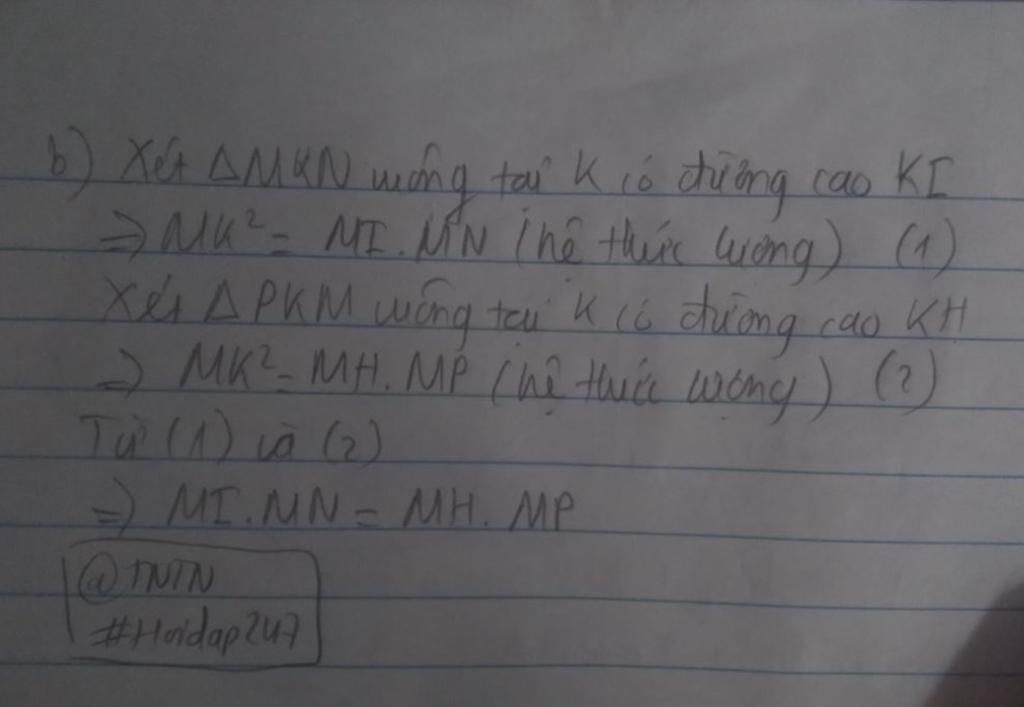 b) Xét ΔMKN vuông tại K có đường cao KI
⇒ MK² = MI.MN (hệ thức lượng) (1)
Xét ΔPKM vuông tại K có đường cao KH
⇒ MK² = MH.MP (hệ thức lượng) (2)
Từ (1) và (2)
⇒ MI.MN = MH.MP
@TNTN
#Hoidap247